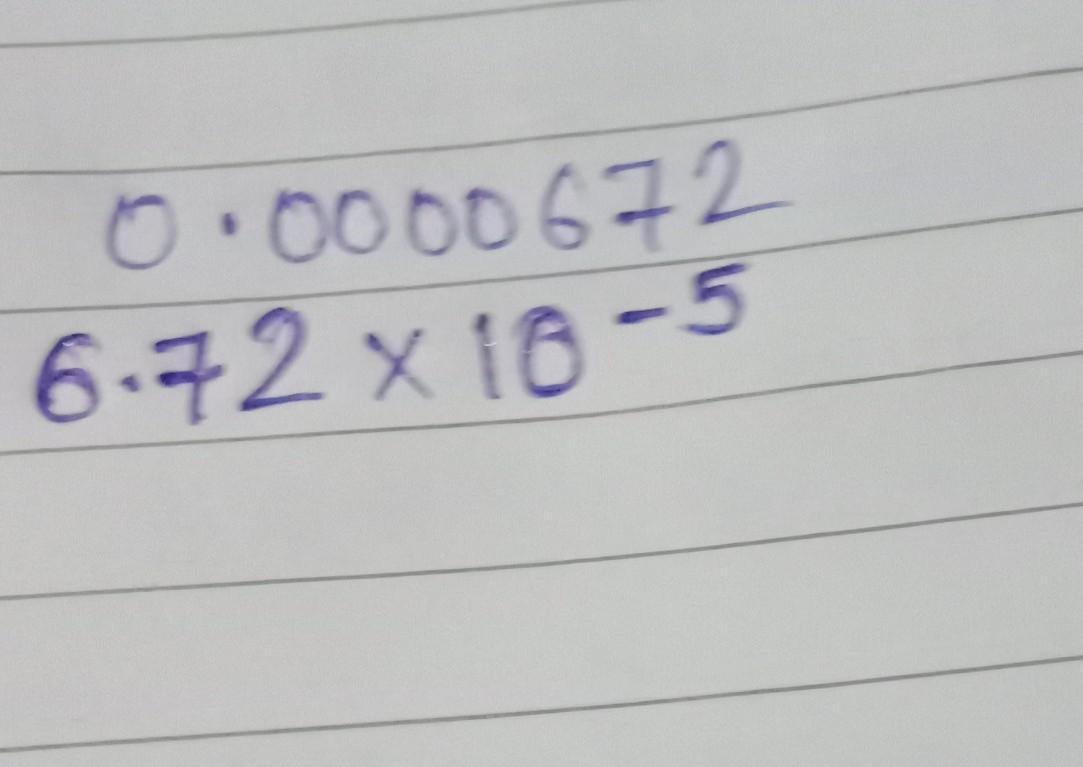 0.0000672
6.72 × 10 -5